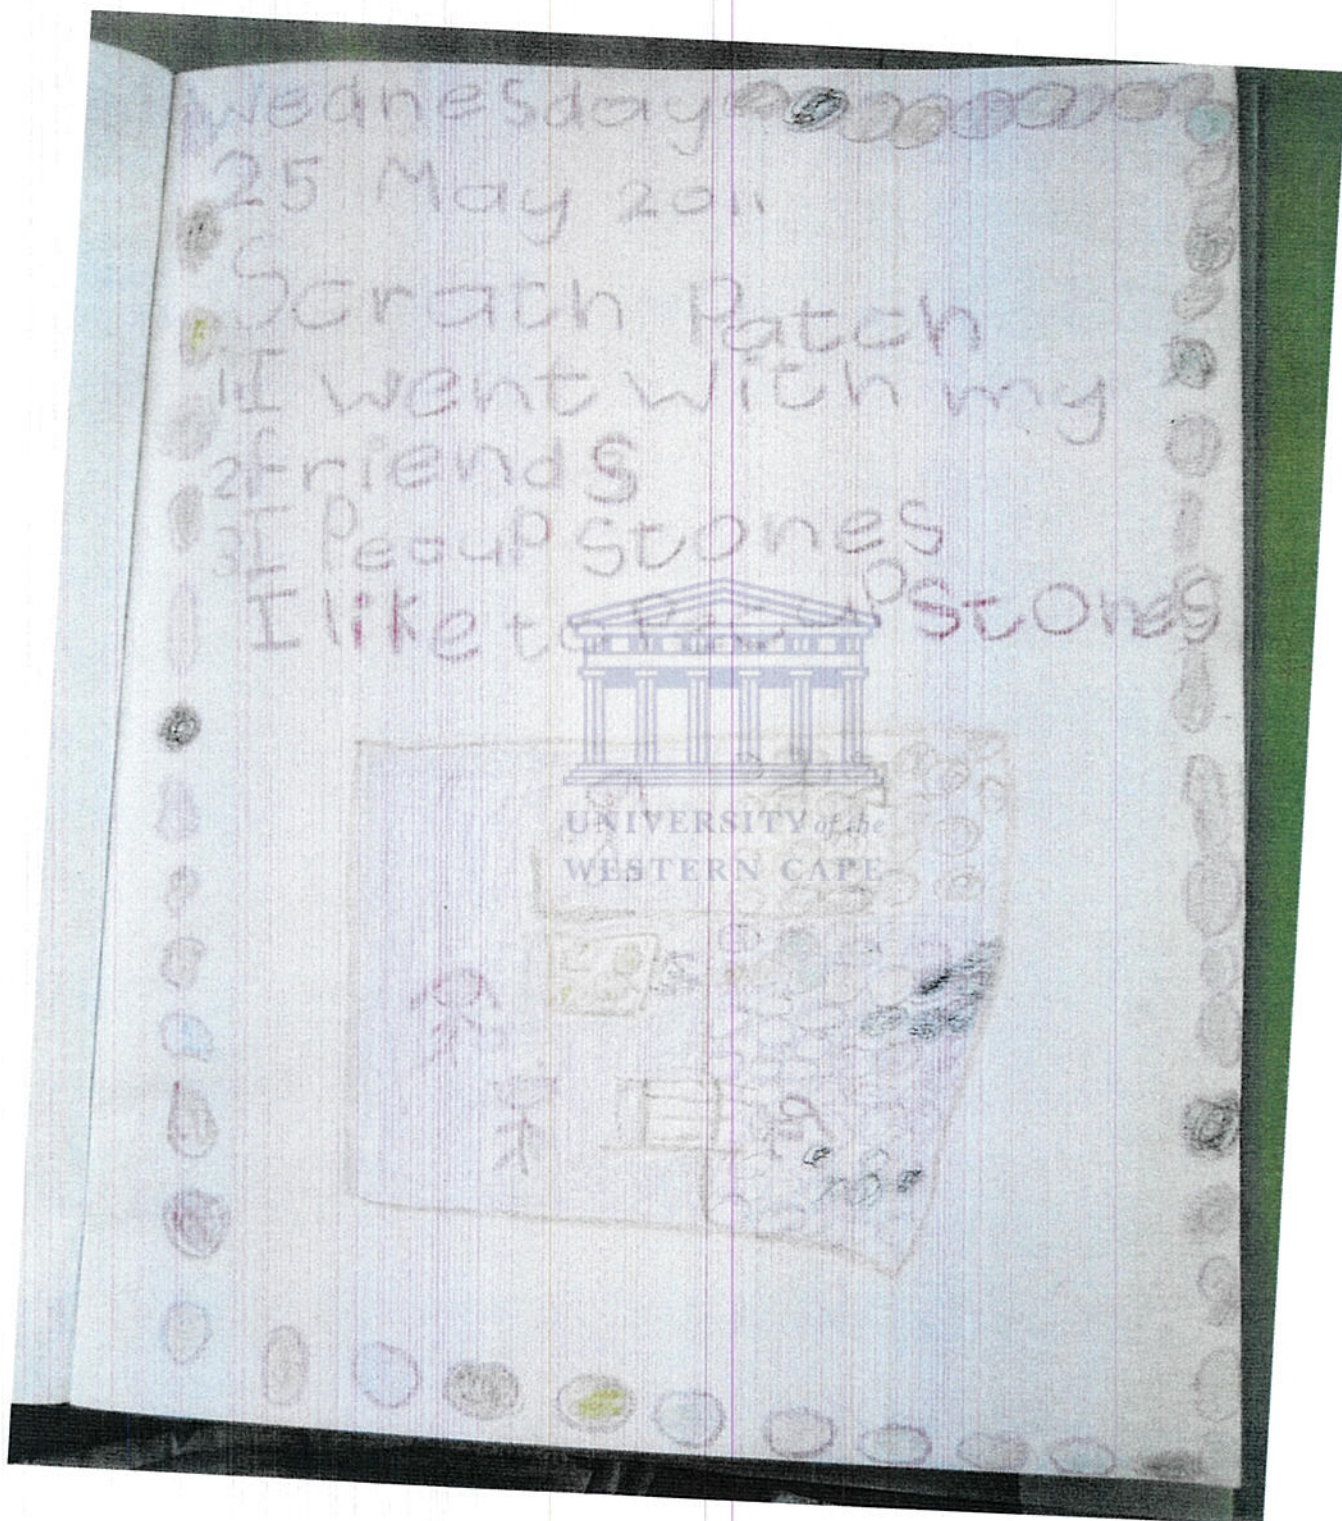 Wednesday
25 May 2011
Scratch Patch
1 I went with my
2 friends
3 I Pecup Stones
I like to Stones
UNIVERSITY of the
WESTERN CAPE